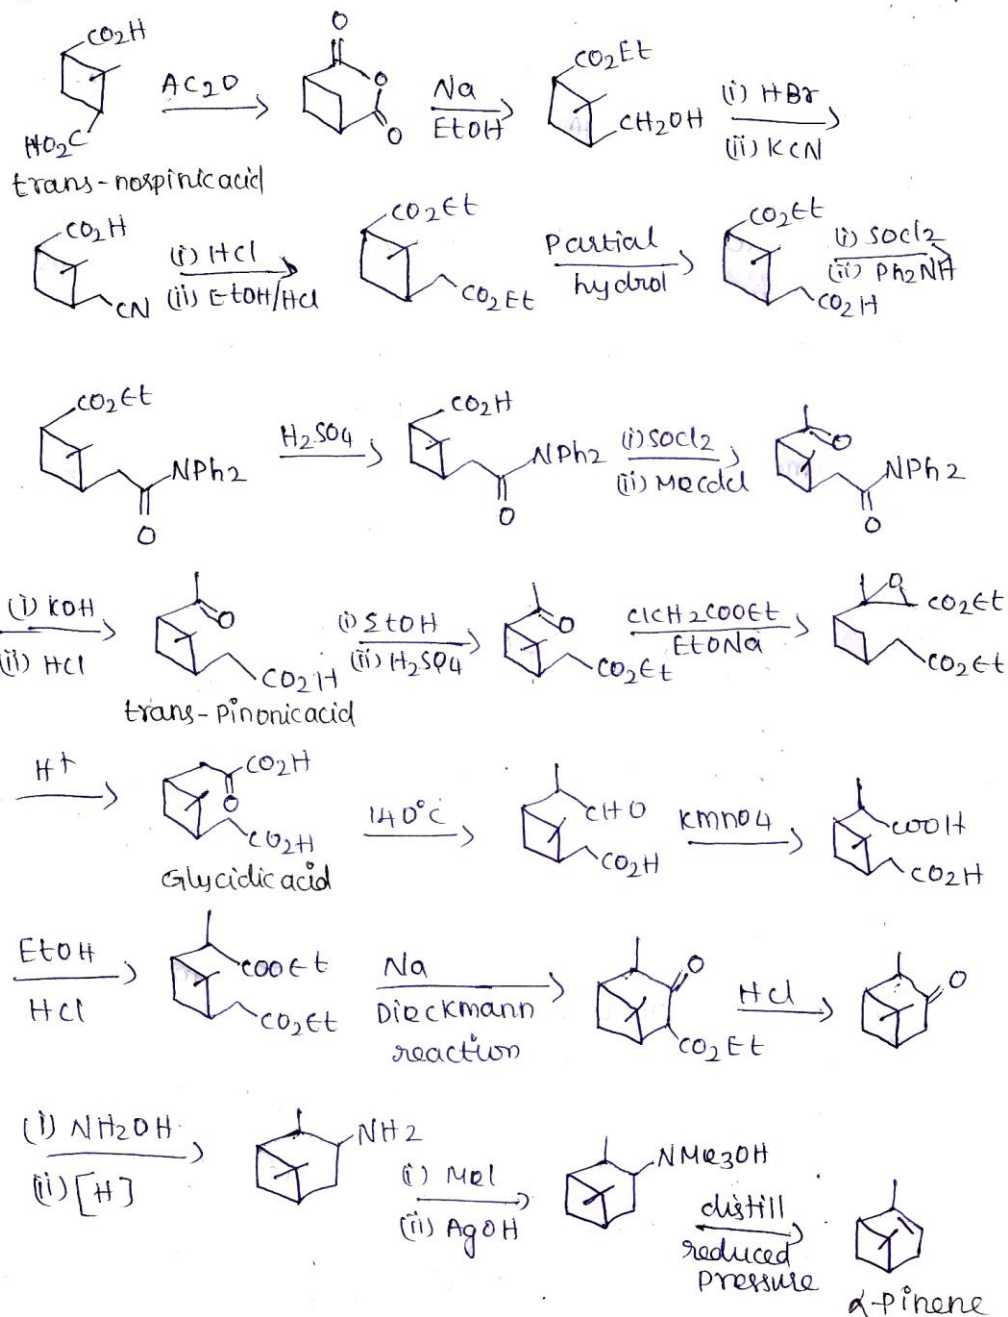 CO2H
HO2C
trans-nospinic acid
AC2O
O
O
O
Na
EtOH
CO2Et
CH2OH
(i) HBr
(ii) KCN
CO2H
CN
(i) HCl
(ii) EtOH/HCl
CO2Et
CO2Et
Partial
hydrol
CO2Et
CO2H
(i) SOCl2
(ii) Ph2NH
CO2Et
NPh2
O
H2SO4
CO2H
NPh2
O
(i) SOCl2
(ii) MeCdCl
O
NPh2
O
(i) KOH
(ii) HCl
O
CO2H
trans-Pinonic acid
(i) StOH
(ii) H2SO4
O
CO2Et
ClCH2COOEt
EtONa
O
CO2Et
CO2Et
H+
CO2H
O
CO2H
Glycidic acid
140°C
CHO
CO2H
KMnO4
COOH
CO2H
EtOH
HCl
COOEt
CO2Et
Na
Dieckmann
reaction
O
CO2Et
HCl
O
(i) NH2OH
(ii) [H]
NH2
(i) MeI
(ii) AgOH
NMe3OH
distill
reduced
pressure
α-Pinene